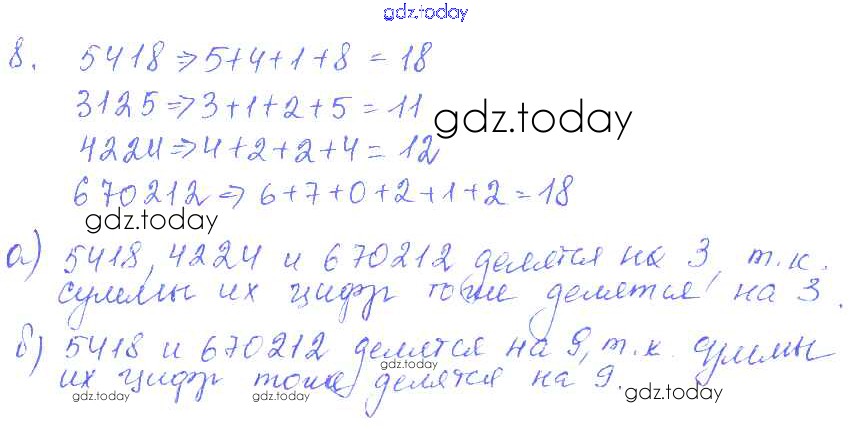 gdz.today
8. 5418 => 5+4+1+8 = 18
3125 => 3+1+2+5 = 11
gdz.today
4224 => 4+2+2+4 = 12
670212 => 6+7+0+2+1+2 = 18
gdz.today
а) 5418, 4224 и 670212 делятся на 3, т.к.
суммы их цифр тоже делятся на 3.
б) 5418 и 670212 делятся на 9, т.к. суммы
gdz.today
их цифр тоже делятся на 9.
gdz.today
gdz.today
gdz.today